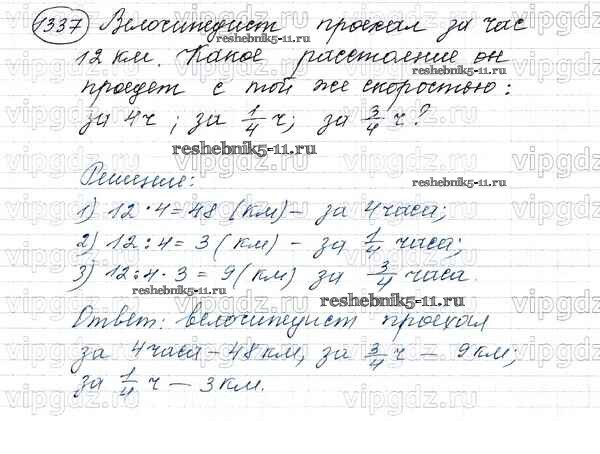 1337 Велосипедист проехал за час
reshebnik5-11.ru
12 км. Какое расстояние он
reshebnik5-11.ru
проедет с той же скоростью:
за 4ч ; за 1/4 ч; за 3/4 ч?
reshebnik5-11.ru
Решение:
reshebnik5-11.ru
1) 12·4=48 (км) – за 4 часа;
2) 12:4=3 (км) – за 1/4 часа;
3) 12:4·3=9 (км) за 3/4 часа.
reshebnik5-11.ru
reshebnik5-11.ru
Ответ: велосипедист проехал
за 4 часа – 48 км, за 3/4 ч – 9 км;
за 1/4 ч – 3 км.
reshebnik5-11.ru
vipgdz.ru